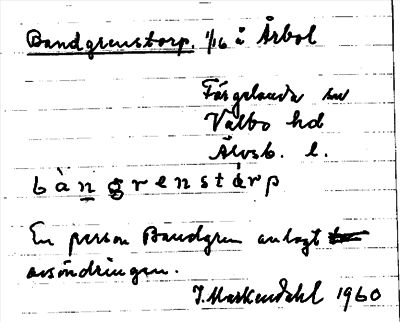 Bandgrenstorp. 1/16 å Årbol
Färgelanda sn
Valbo hd
Älvsb. l.
bàngrenstårp
En person Bandgren anlagt
avsöndringen.
J. Markendahl 1960